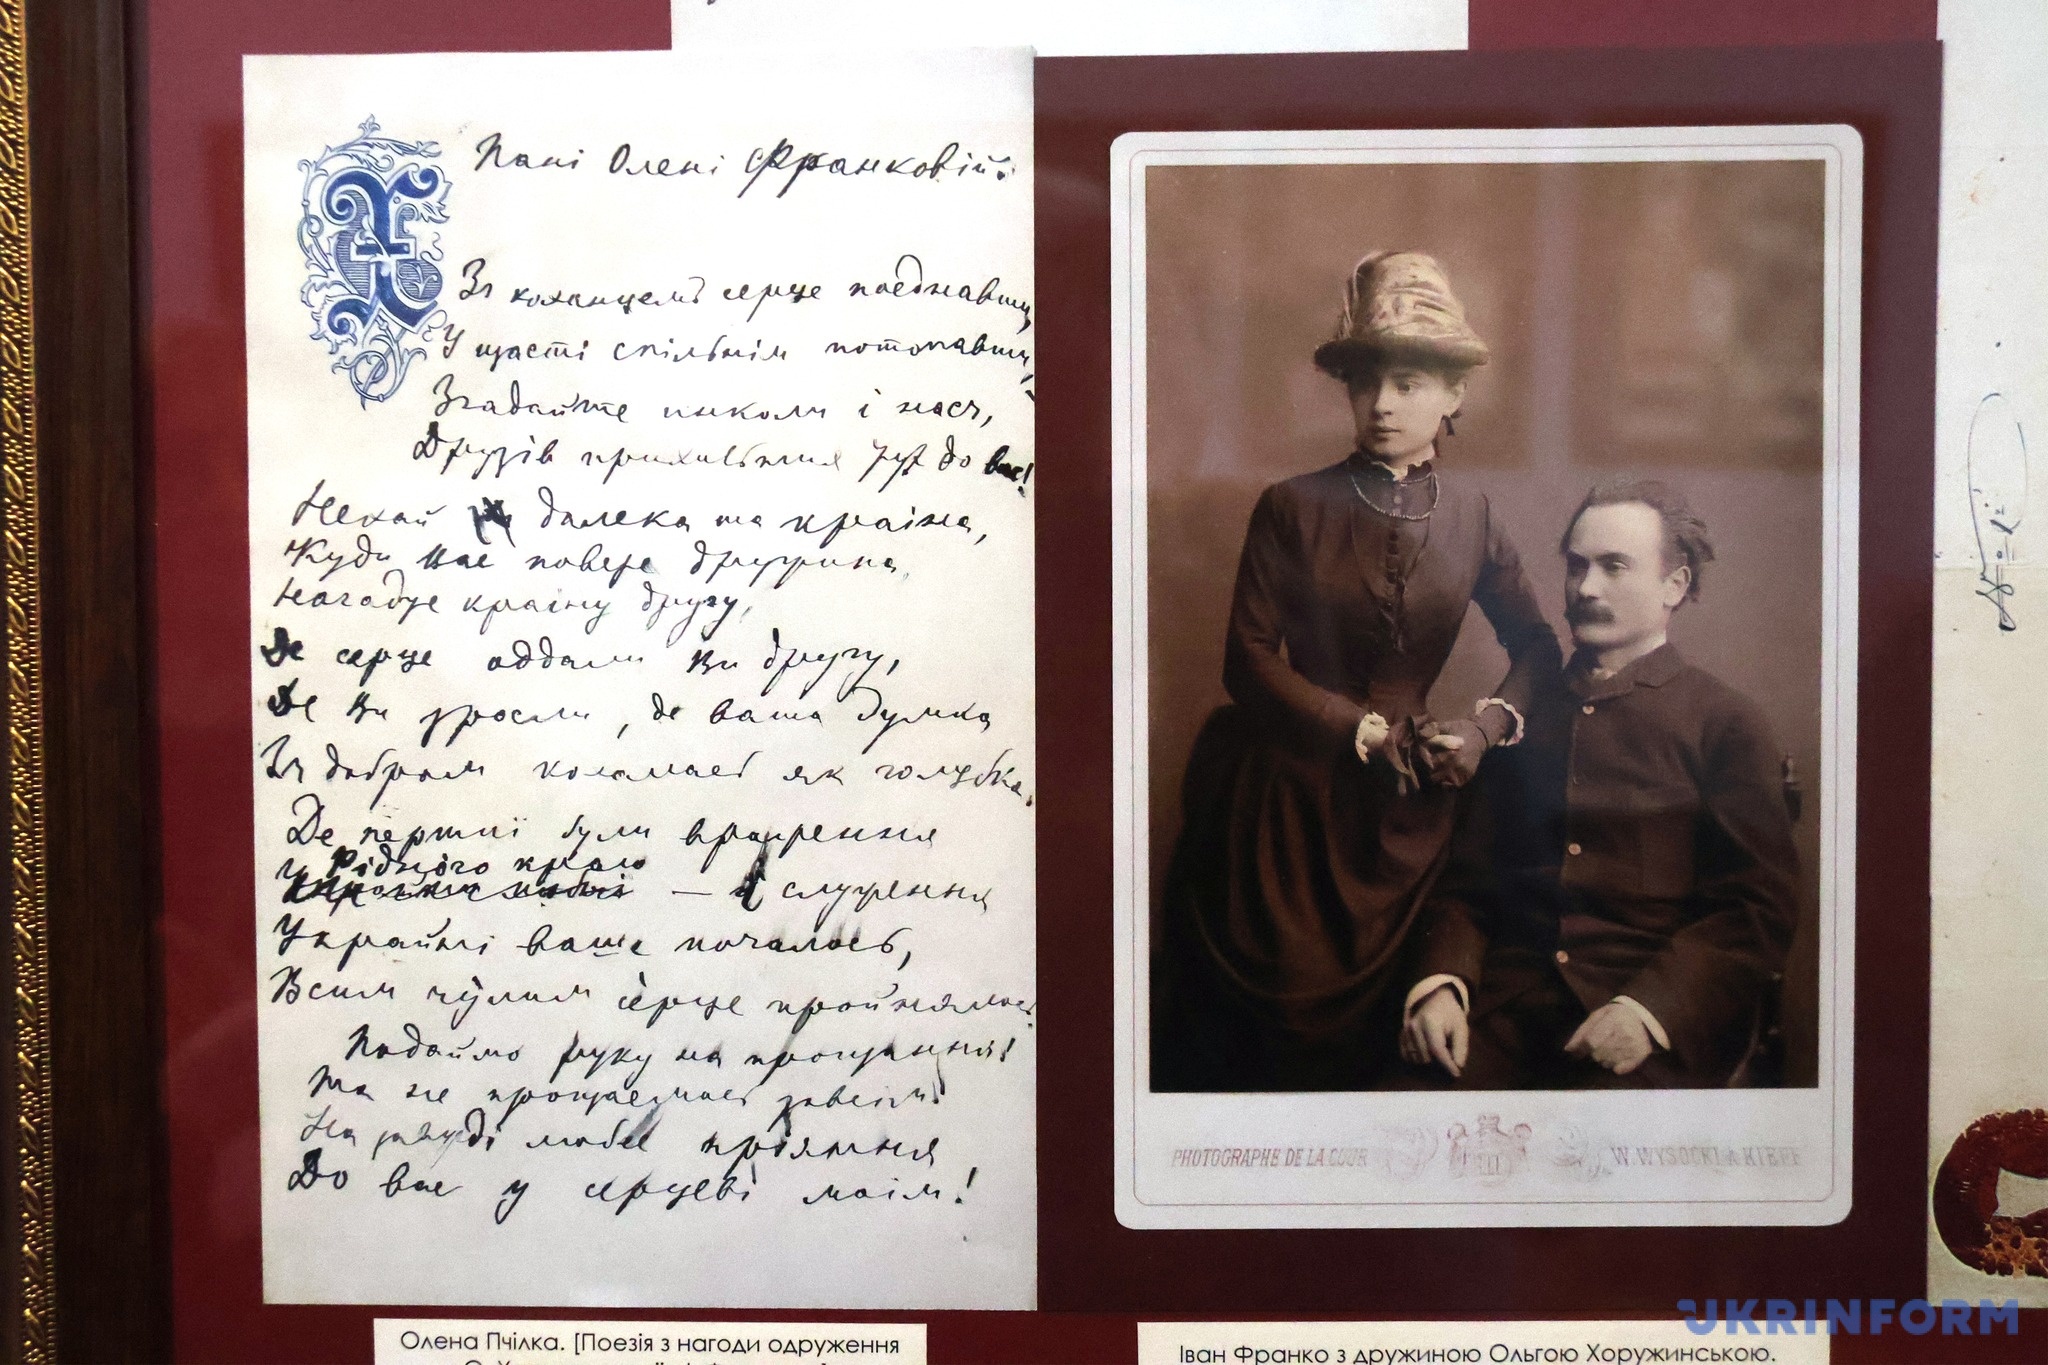 Пані Олені Франковій.
Зъ коханцемъ серце поєднавши,
У щасті спільнім потопавши,
Згадайте инколи і насъ,
Друзів прихильних тут до вас!
Нехай далека та країна,
Куди вас повезе дружина,
Нагадує країну другу,
Де серце оддали Ви другу,
Де Ви зросли, де ваша думка
Зъ добром кохалась як голубка.
Де першії були враження
У Рідного краю
— й служення
Украйні ваше почалось,
Всим чулим серце пройнялось.
Подаймо руку на прощання!
Та не прощаємось зовсім!
На завжді любе пріяння
До вас у серцеві моім!
PHOTOGRAPHE DE LA COUR W. WYSOCKI A KIEFF
Олена Пчілка. [Поезія з нагоди одруження
Іван Франко з дружиною Ольгою Хоружинською.
UKRINFORM